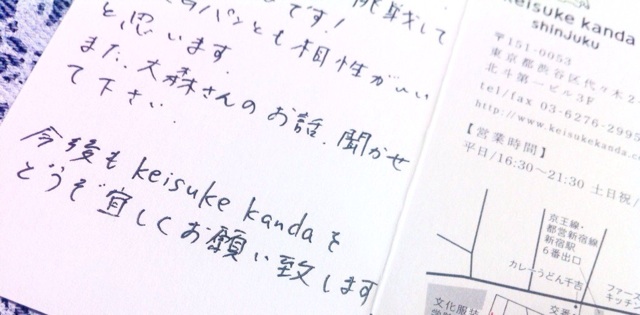 です! 挑戦して
パンとも相性がいい
と思います.
また、大森さんのお話、聞かせ
て下さい.
今後も keisuke kanda を
どうぞ宜しくお願い致します
keisuke kanda
shinjuku
〒151-0053
東京都渋谷区代々木2-
北斗第一ビル3F
tel/fax 03-6276-2995
http://www.keisukekanda.co
【営業時間】
平日/16:30～21:30 土日祝/
京王線・
都営新宿線
新宿駅
6番出口
カレーうどん千吉
ファース
キッチン
交番
文化服装
学院